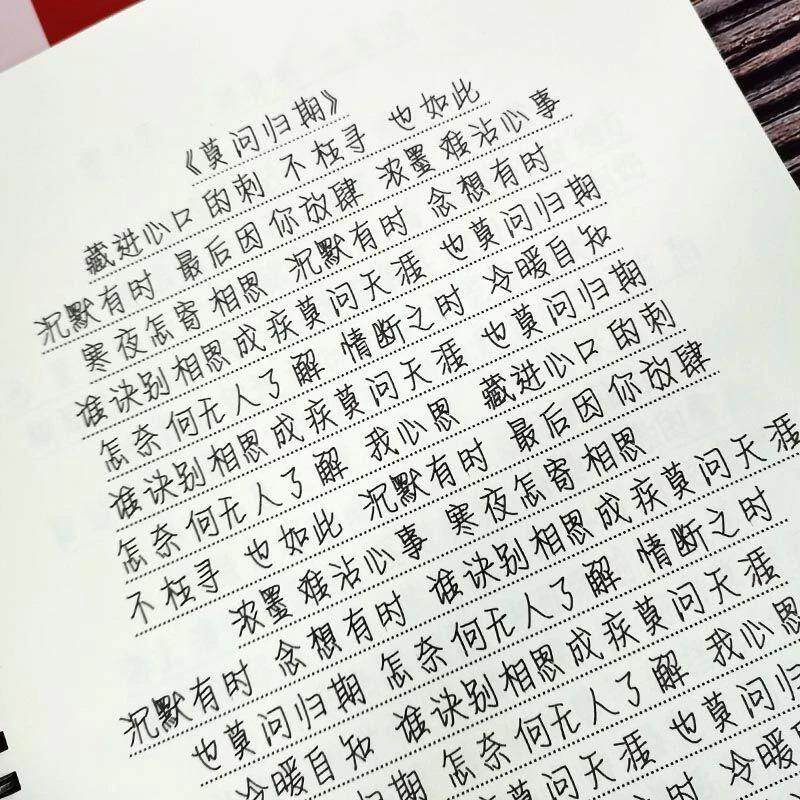 《莫问归期》
藏进心口的刺 不枉寻 也如此
沉默有时 最后因你放肆 浓墨难沾心事
寒夜怎寄相思 沉默有时 念想有时
谁诀别相思成疾莫问天涯 也莫问归期
怎奈何无人了解 情断之时 冷暖自知
谁诀别相思成疾莫问天涯 也莫问归期
怎奈何无人了解 我心思 藏进心口的刺
不枉寻 也如此 沉默有时 最后因你放肆
浓墨难沾心事 寒夜怎寄相思
沉默有时 念想有时 谁诀别相思成疾莫问天涯
也莫问归期 怎奈何无人了解 情断之时
冷暖自知 谁诀别相思成疾莫问天涯
归期 怎奈何无人了解 我心思
莫问天涯 也莫问归
时 冷暖